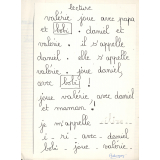 lecture
valérie joue avec papa
et bobi . daniel et
valérie . il s'appelle
daniel . elle s'appelle
valérie . joue daniel,
avec bobi !
joue valérie avec daniel
et maman !
je m'appelle
i . ri . avec . daniel
bobi . joue . valérie .